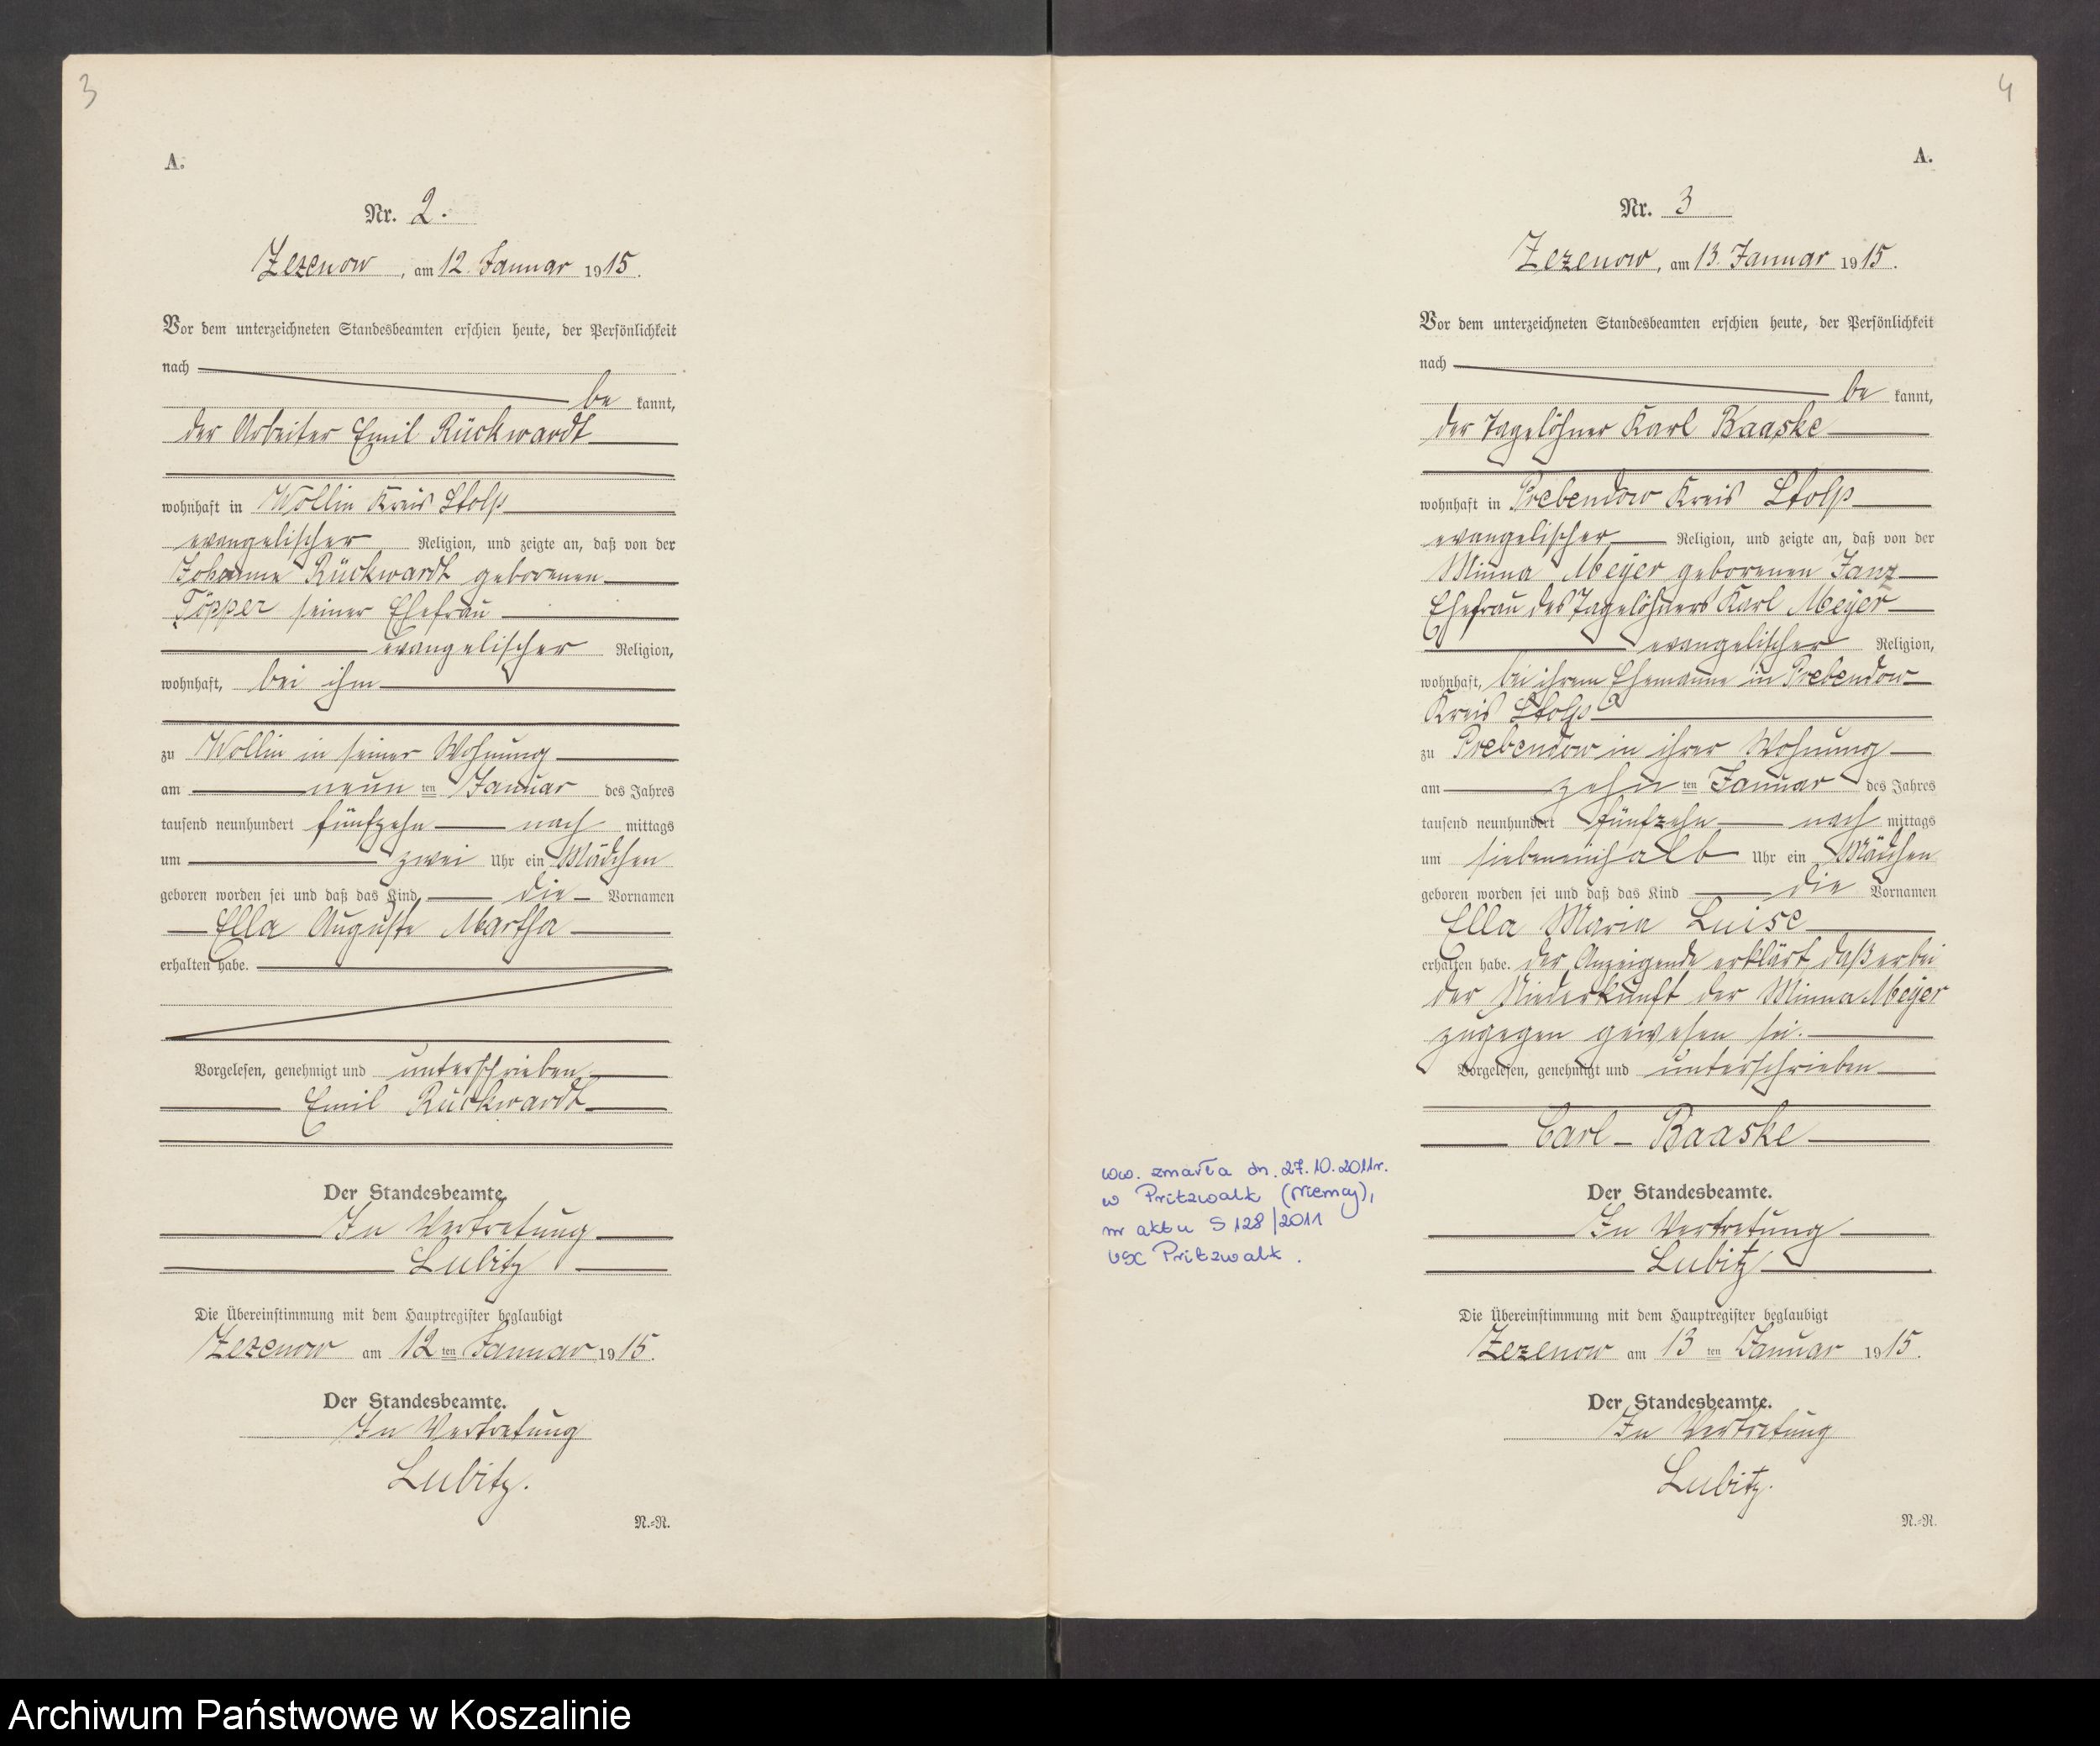 3
A.
Nr. 2.
Zezenow, am 12. Januar 1915.
Vor dem unterzeichneten Standesbeamten erschien heute, der Persönlichkeit
nach
be kannt,
der Arbeiter Emil Rückwardt
wohnhaft in Wollin Kreis Stolp
evangelischer Religion, und zeigte an, daß von der
Johanne Rückwardt geborenen
Töpper seiner Ehefrau
evangelischer Religion,
wohnhaft, bei ihm
zu Wollin in seiner Wohnung
am neun ten Januar des Jahres
tausend neunhundert fünfzehn nach mittags
um zwei Uhr ein Mädchen
geboren worden sei und daß das Kind die Vornamen
Ella Auguste Martha
erhalten habe.
Vorgelesen, genehmigt und unterschrieben
Emil Rückwardt
Der Standesbeamte.
In Vertretung
Lubitz
Die Übereinstimmung mit dem Hauptregister beglaubigt
Zezenow am 12 ten Januar 1915.
Der Standesbeamte.
In Vertretung
Lubitz.
N.=R.
4
A.
Nr. 3
Zezenow, am 13. Januar 1915.
Vor dem unterzeichneten Standesbeamten erschien heute, der Persönlichkeit
nach
be kannt,
der Tagelöhner Karl Baaske
wohnhaft in Prebendow Kreis Stolp
evangelischer Religion, und zeigte an, daß von der
Minna Meyer geborenen Janz
Ehefrau des Tagelöhners Karl Meyer
evangelischer Religion,
wohnhaft, bei ihrem Ehemanne in Prebendow
Kreis Stolp
zu Prebendow in ihrer Wohnung
am zehn ten Januar des Jahres
tausend neunhundert fünfzehn nach mittags
um siebeneinhalb Uhr ein Mädchen
geboren worden sei und daß das Kind die Vornamen
Ella Maria Luise
erhalten habe. der Anzeigende erklärt, daß er bei
der Niederkunft der Minna Meyer
zugegen gewesen sei.
Vorgelesen, genehmigt und unterschrieben
Carl Baaske
ww. zmarła dn. 27.10.2011r.
w Pritzwalk (Niemcy),
nr aktu S 128/2011
USC Pritzwalk.
Der Standesbeamte.
In Vertretung
Lubitz
Die Übereinstimmung mit dem Hauptregister beglaubigt
Zezenow am 13 ten Januar 1915.
Der Standesbeamte.
In Vertretung
Lubitz.
N.=R.
Archiwum Państwowe w Koszalinie